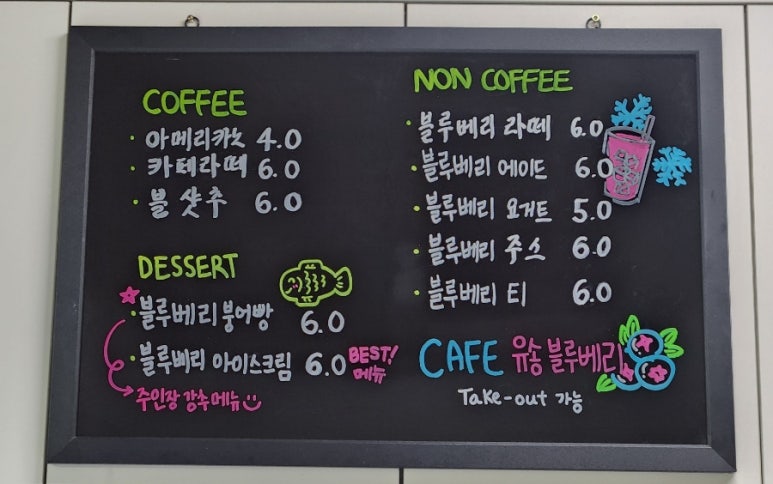 COFFEE
· 아메리카노 4.0
· 카페라떼 6.0
· 블 샷추 6.0
DESSERT
· 블루베리 붕어빵 6.0
· 블루베리 아이스크림 6.0 BEST! 메뉴
주인장 강추메뉴
NON COFFEE
· 블루베리 라떼 6.0
· 블루베리 에이드 6.0
· 블루베리 요거트 5.0
· 블루베리 주스 6.0
· 블루베리 티 6.0
CAFE 유송 블루베리
Take-out 가능